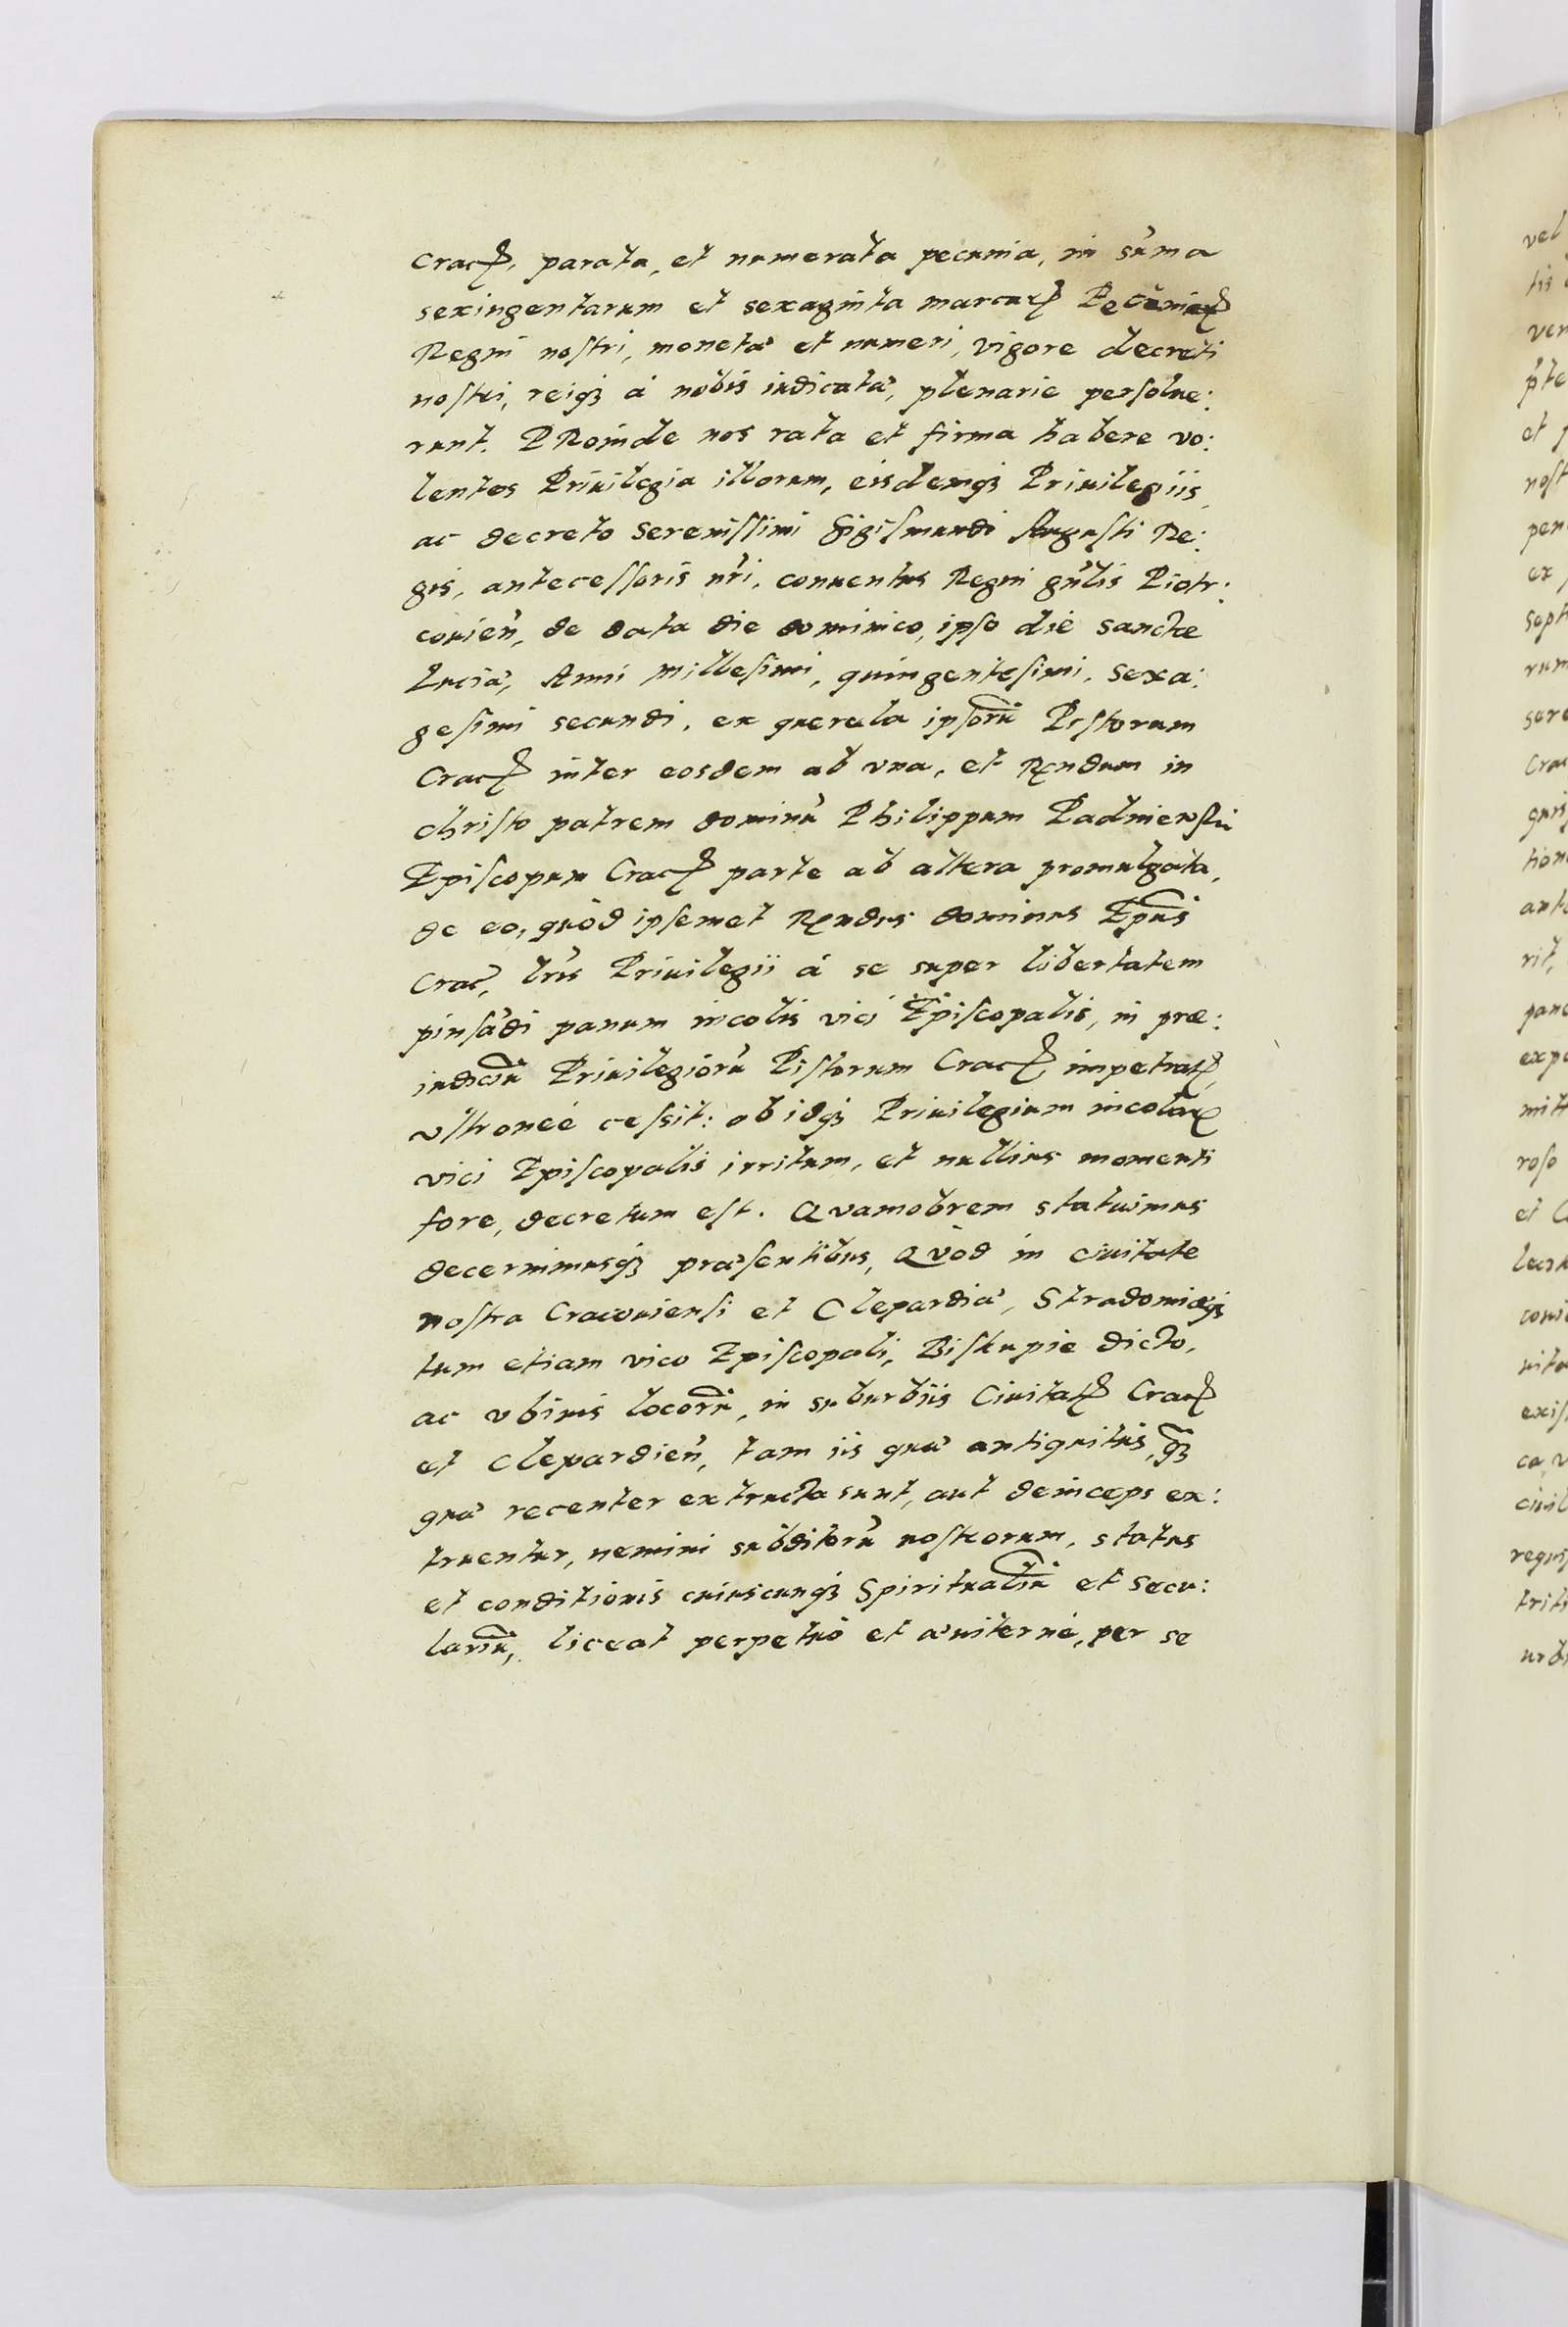 Cracꝭ, parata, et numerata pecunia, in sum̃a
sexingentarum et sexaginta marcarꝭ Pecuniarꝭ
Regni nostri, monetæ et numeri, vigore decreti
nostri, reiqꝫ à nobis iudicatæ, plenarie persolue:
runt. PRoinde nos rata et firma habere vo:
lentes Priuilegia illorum, eisdemqꝫ Priuilegiis,
ac decreto Serenissimi Sigismundi Augusti Re:
gis, antecessoris nr̃i, conuentus Regni gñlis Piotr:
couieñ, de data die dominico, ipso die sanctæ
Luciæ, Anni Millesimi, quingentesimi, sexa:
gesimi secundi, ex querela ipsorũ Pistorum
Cracꝭ inter eosdem ab vna, et Rendum in
christo patrem dominũ Philippum Padnieuski
Episcopum Cracꝭ parte ab altera promulgata,
de eo, quòd ipsemet Rendus dominus Ep̃us
Crac̃, lr̃is Priuilegii à se super libertatem
pinsãdi panum incolis vici Episcopalis, in præ:
iudiciũ Priuilegiorũ Pistorum Cracꝭ impetratꝭ,
vltroneè cessit: ob idqꝫ Priuilegium incolarꝝ
vici Episcopalis irritum, et nullius momenti
fore, decretum est. Quamobrem statuimus
decernimusqꝫ præsentibus, Quòd in ciuitate
nostra Cracouiensi et Clepardiæ, Stradomiæqꝫ
tum etiam vico Episcopali, Biskupie dicto,
ac vbiuis locorũ, in suburbiis Ciuitatꝭ Cracꝭ
et Clepardieñ, tam iis quæ antiquitùs, q̃ꝫ
quæ recenter extructa sunt, aut deinceps ex:
truentur, nemini subditorũ nostrorum, status
et conditionis cuiuscunqꝫ Spiritualiũ et Secu:
lariũ, liceat perpetuò et æuiternè, per se